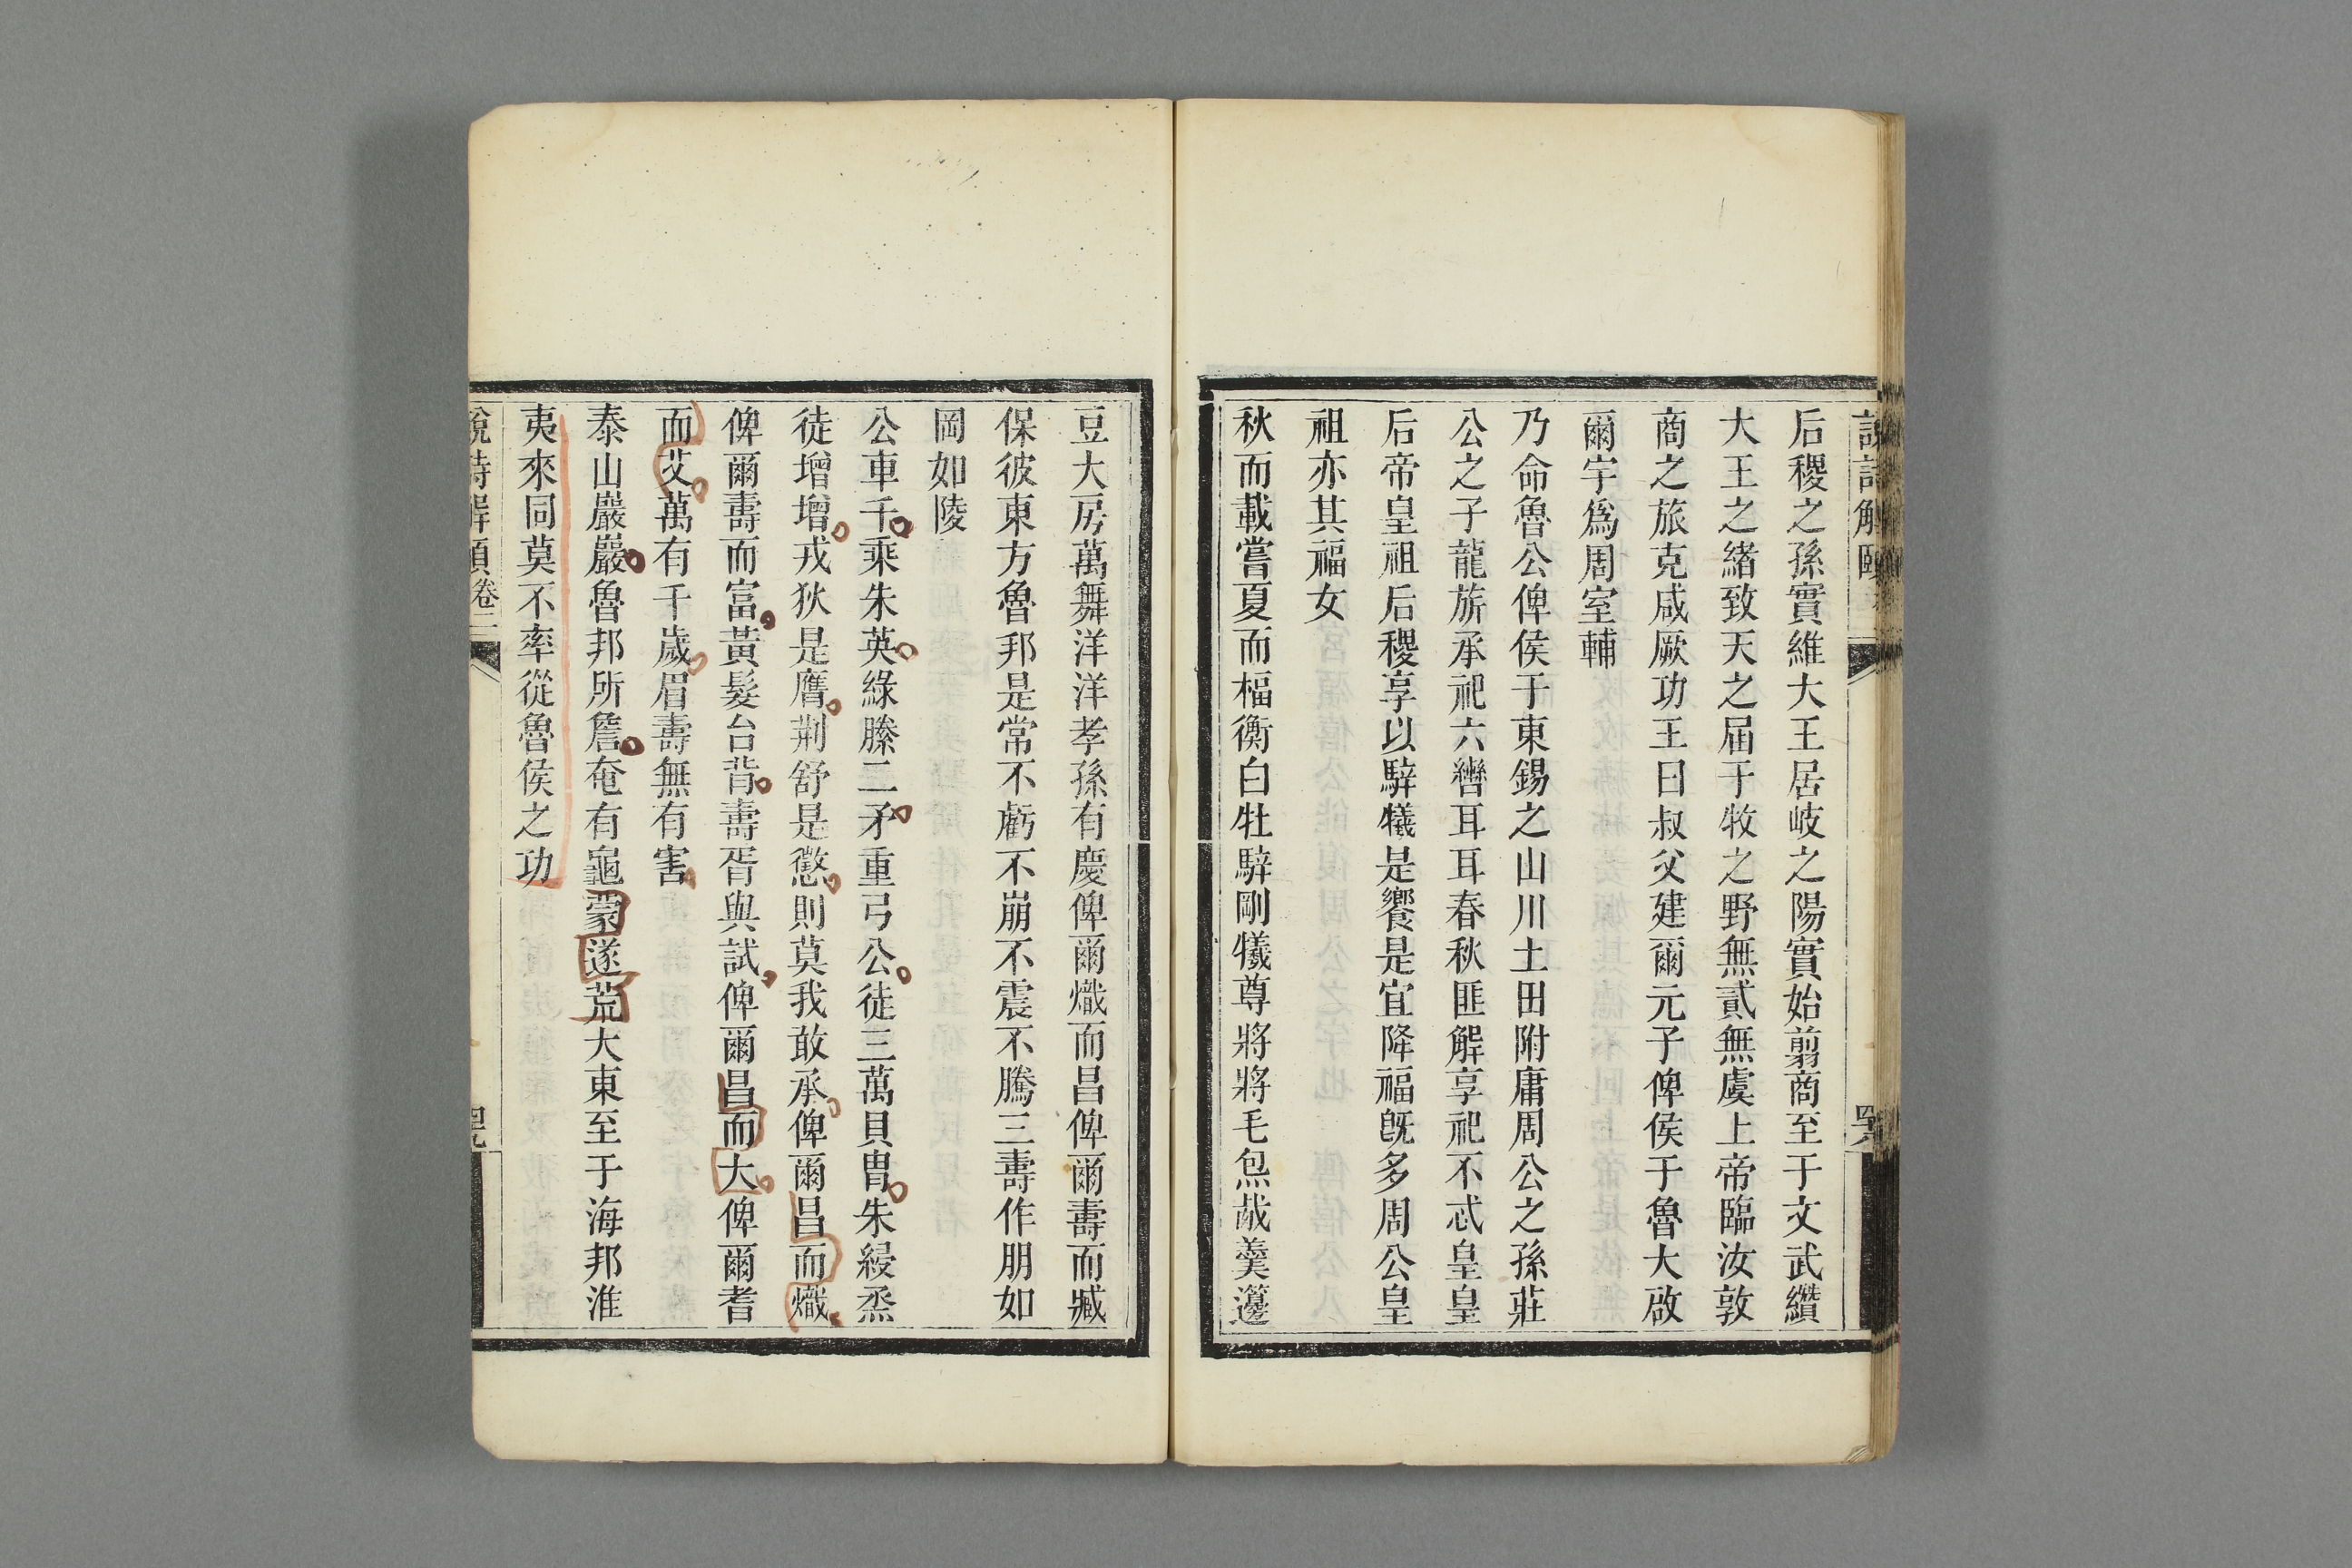 說詩解頤
后稷之孫實維大王居岐之陽實始翦商至于文武纘
大王之緒致天之屆于牧之野無貳無虞上帝臨汝敦
商之旅克咸厥功王曰叔父建爾元子俾侯于魯大啟
爾宇爲周室輔
乃命魯公俾侯于東錫之山川土田附庸周公之孫莊
公之子龍旂承祀六轡耳耳春秋匪解享祀不忒皇皇
后帝皇祖后稷享以騂犧是饗是宜降福旣多周公皇
祖亦其福女
秋而載嘗夏而楅衡白牡騂剛犧尊將將毛炰胾羹籩
豆大房萬舞洋洋孝孫有慶俾爾熾而昌俾爾壽而臧
保彼東方魯邦是常不虧不崩不震不騰三壽作朋如
岡如陵
公車千乘朱英綠縢二矛重弓公徒三萬貝胄朱綅烝
徒增增戎狄是膺荆舒是懲則莫我敢承俾爾昌而熾
俾爾壽而富黃髮台背壽胥與試俾爾昌而大俾爾耆
而艾萬有千歲眉壽無有害
泰山巖巖魯邦所詹奄有龜蒙遂荒大東至于海邦淮
夷來同莫不率從魯侯之功
說詩解頤卷二